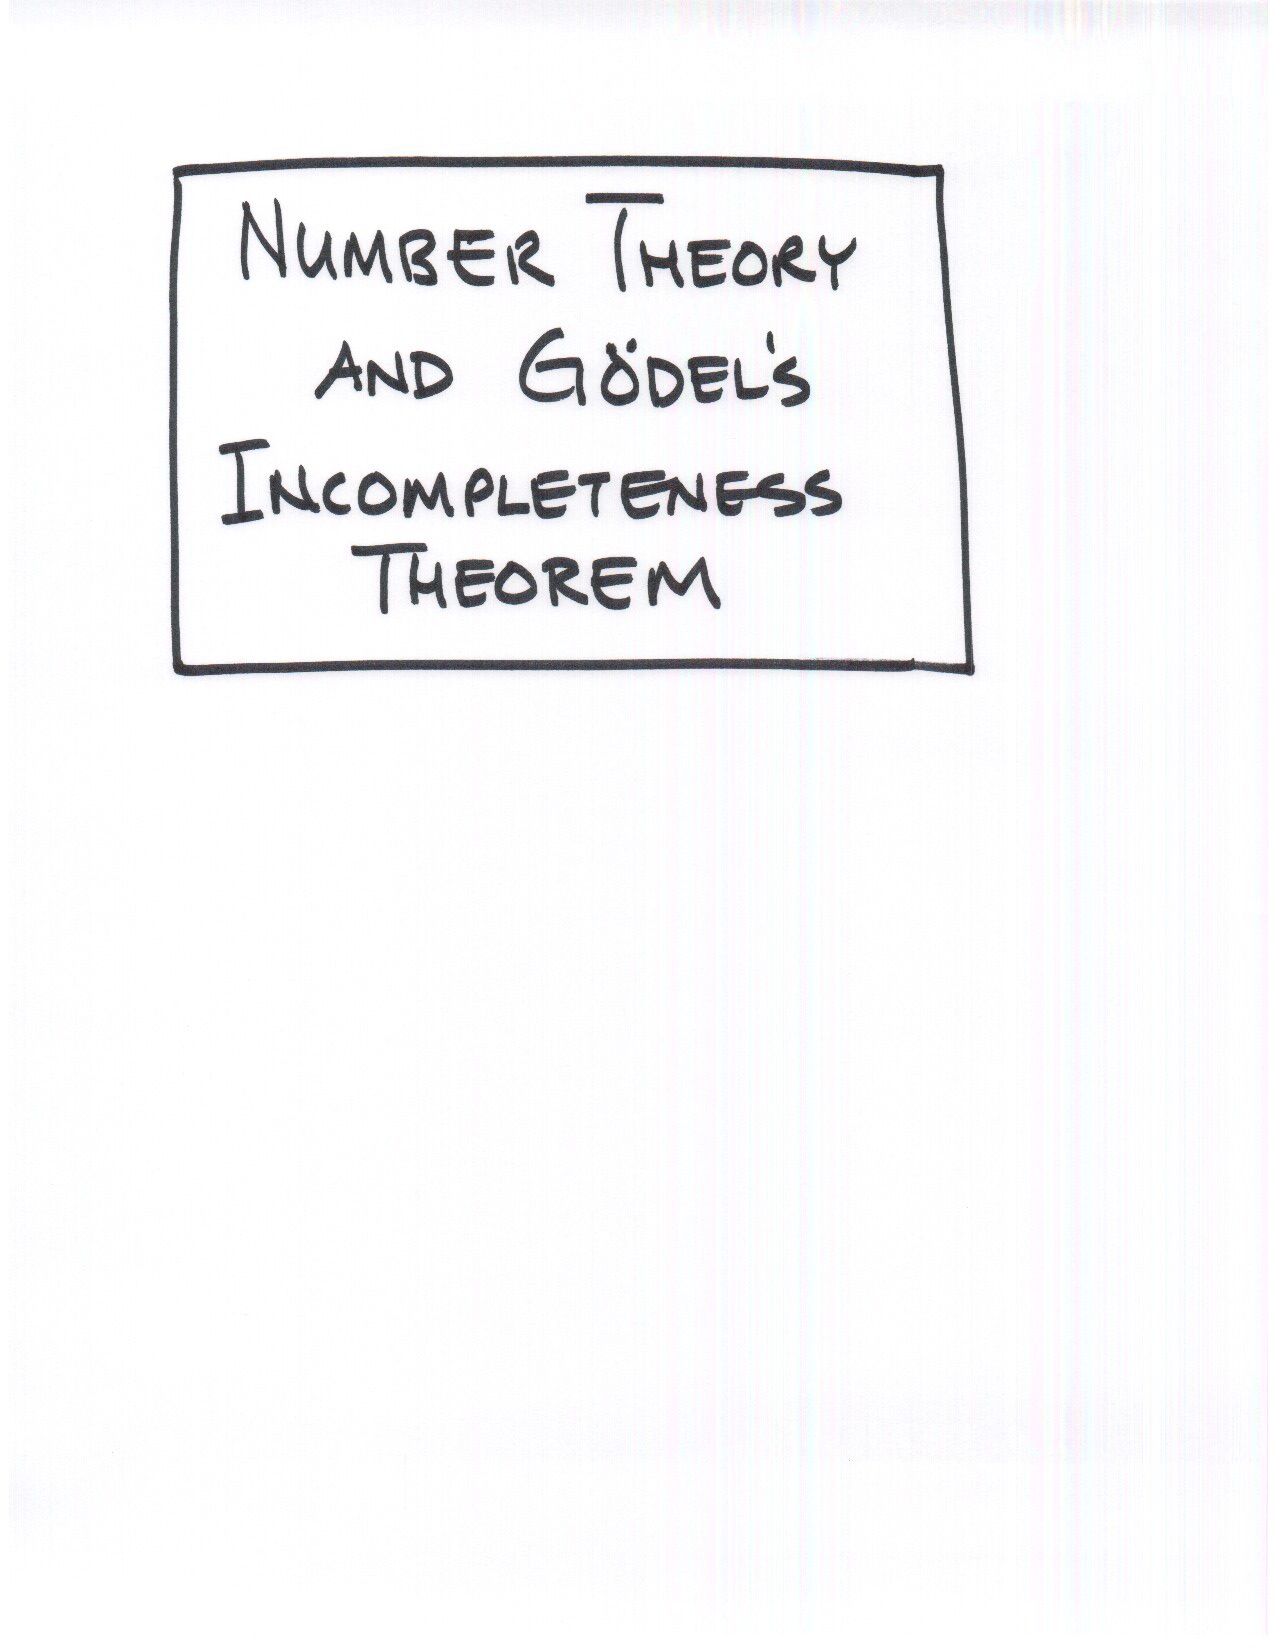 NUMBER THEORY
AND GÖDEL'S
INCOMPLETENESS
THEOREM